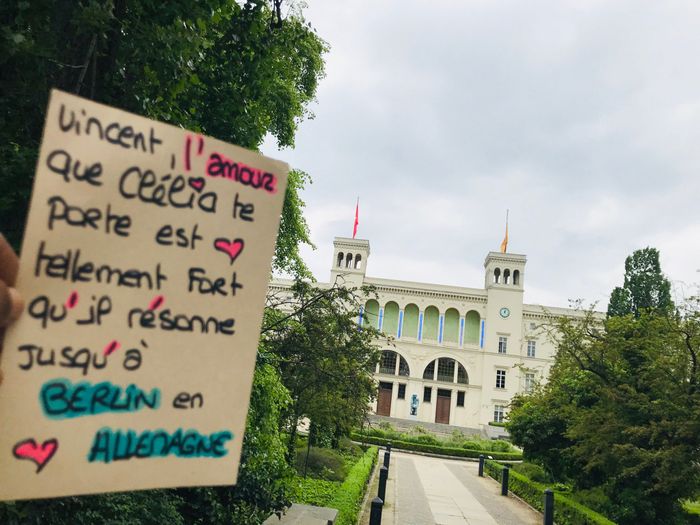 Vincent, l'amour
que Clélia te
porte est
tellement fort
qu'il résonne
jusqu'à
BERLIN en
ALLEMAGNE